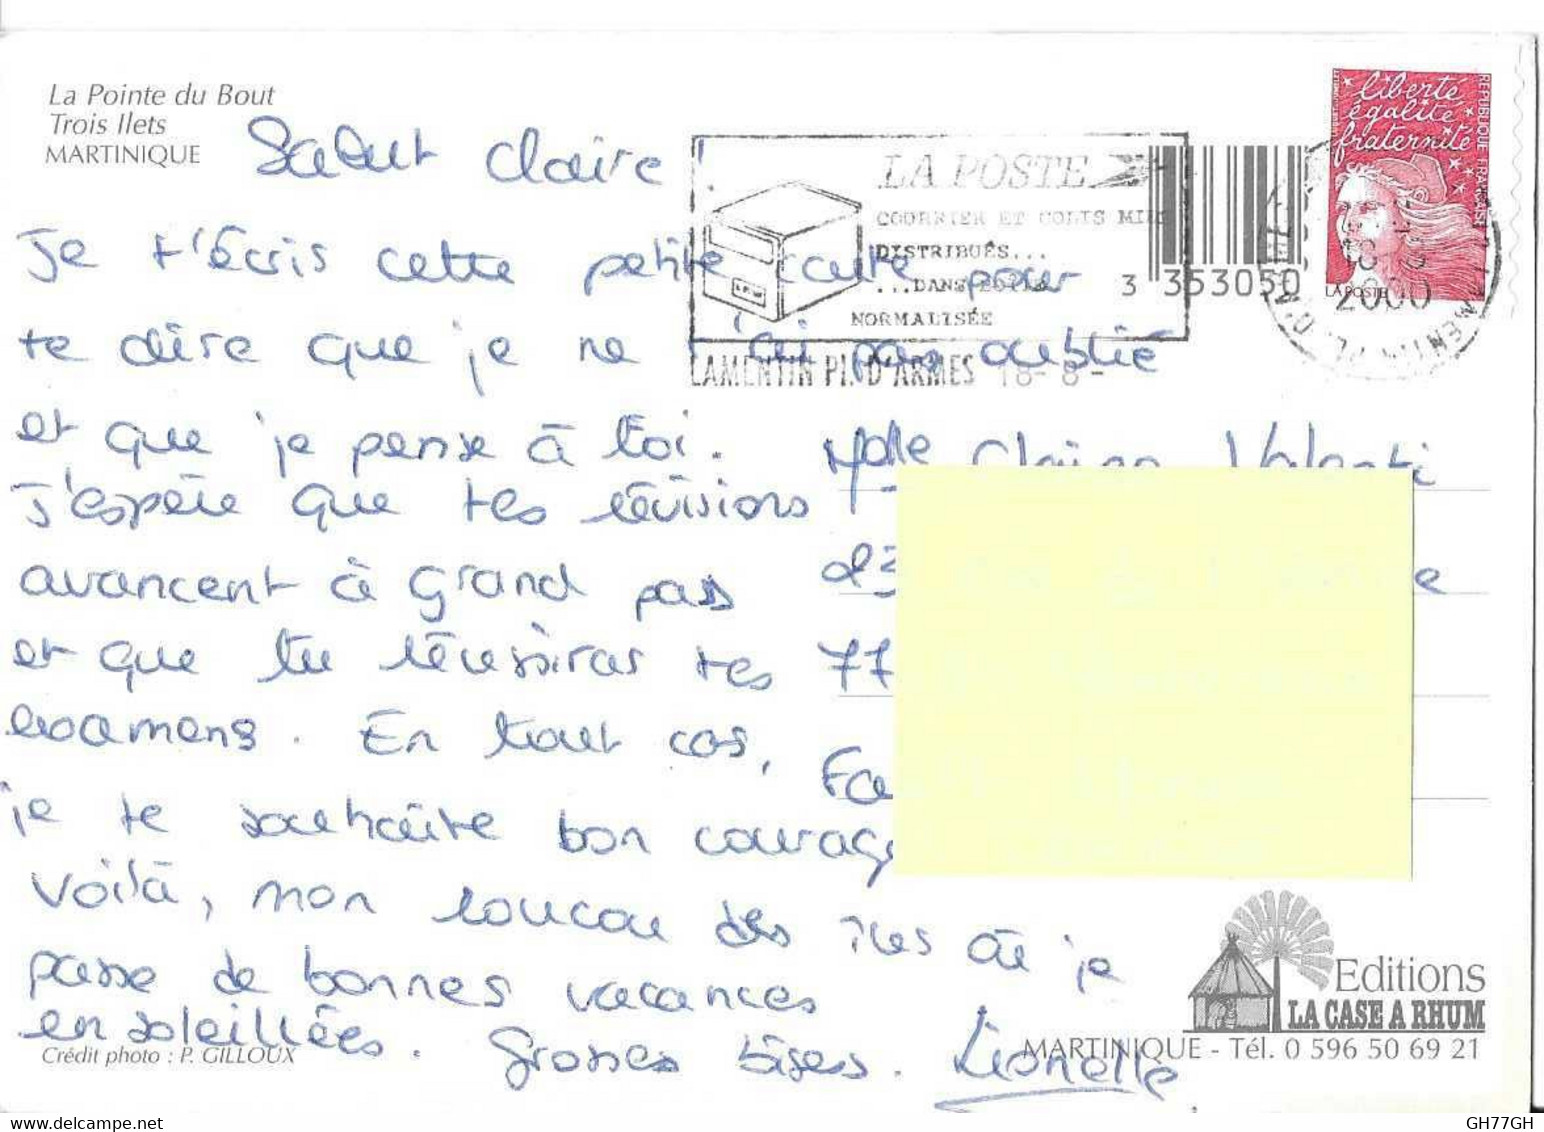 La Pointe du Bout
Trois Ilets
MARTINIQUE
Salut Claire !
Je t'écris cette petite carte pour
te dire que je ne t'ai pas oublié
et que je pense à toi.
J'espère que tes révisions
avancent à grand pass
et que tu réussiras tes
examens. En tout cas,
je te souhaite bon courag
Voilà, mon coucou des îles où je
passe de bonnes vacances
ensoleillées. Grosses bises. Lionelle
Crédit photo : P. GILLOUX
LA POSTE
COURRIER ET COLIS
DISTRIBUÉS...
...DANS BOITE
NORMALISÉE
LAMENTIN PL. D'ARMES 18-8-
3 353050
liberté
égalité
fraternité
REPUBLIQUE FRANÇAISE
LA POSTE
2000
Melle Claire
23
e
77
Fa
Editions
LA CASE A RHUM
MARTINIQUE - Tél. 0 596 50 69 21
GH77GH